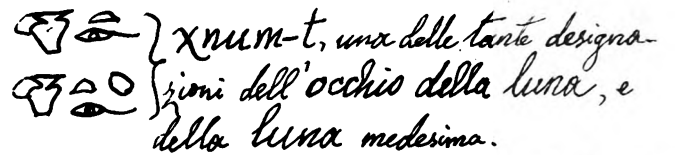 χnum-t, una delle tante designa-
zioni dell'occhio della luna, e
della luna medesima.